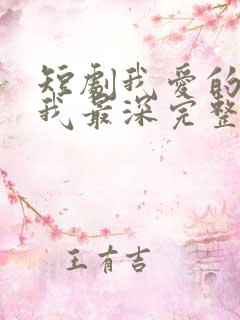 短劇我愛的
我最深完整
王有吉